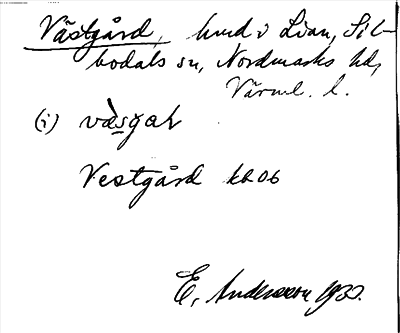 Västgård, hmd i Lian, Sil-
bodals sn, Nordmarks hd,
Värml. l.
(i) vàsgaɫ
Vestgård kb 06
E. Andersson 1933.